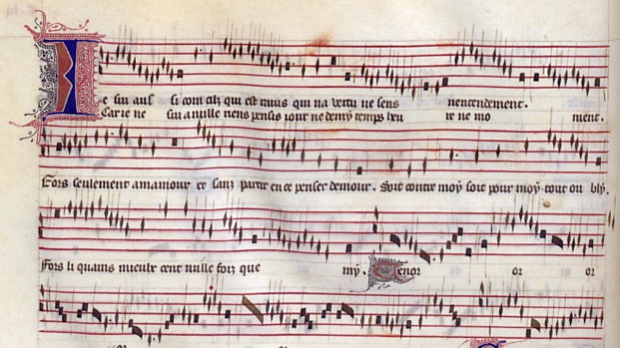 Ie sui aussi com cilz qui est ravis qui na vertu ne sens nentendement.
Car ie ne sui a nulle riens pensis iour ne demy temps heu ire ne mo ment.
Fors seulement a mamour et sanz partir en ce penser demour. Soit contre moy soit pour moy tout oubly.
Fors li quaim mieulx cent mille foiz que my Tenor or or
or